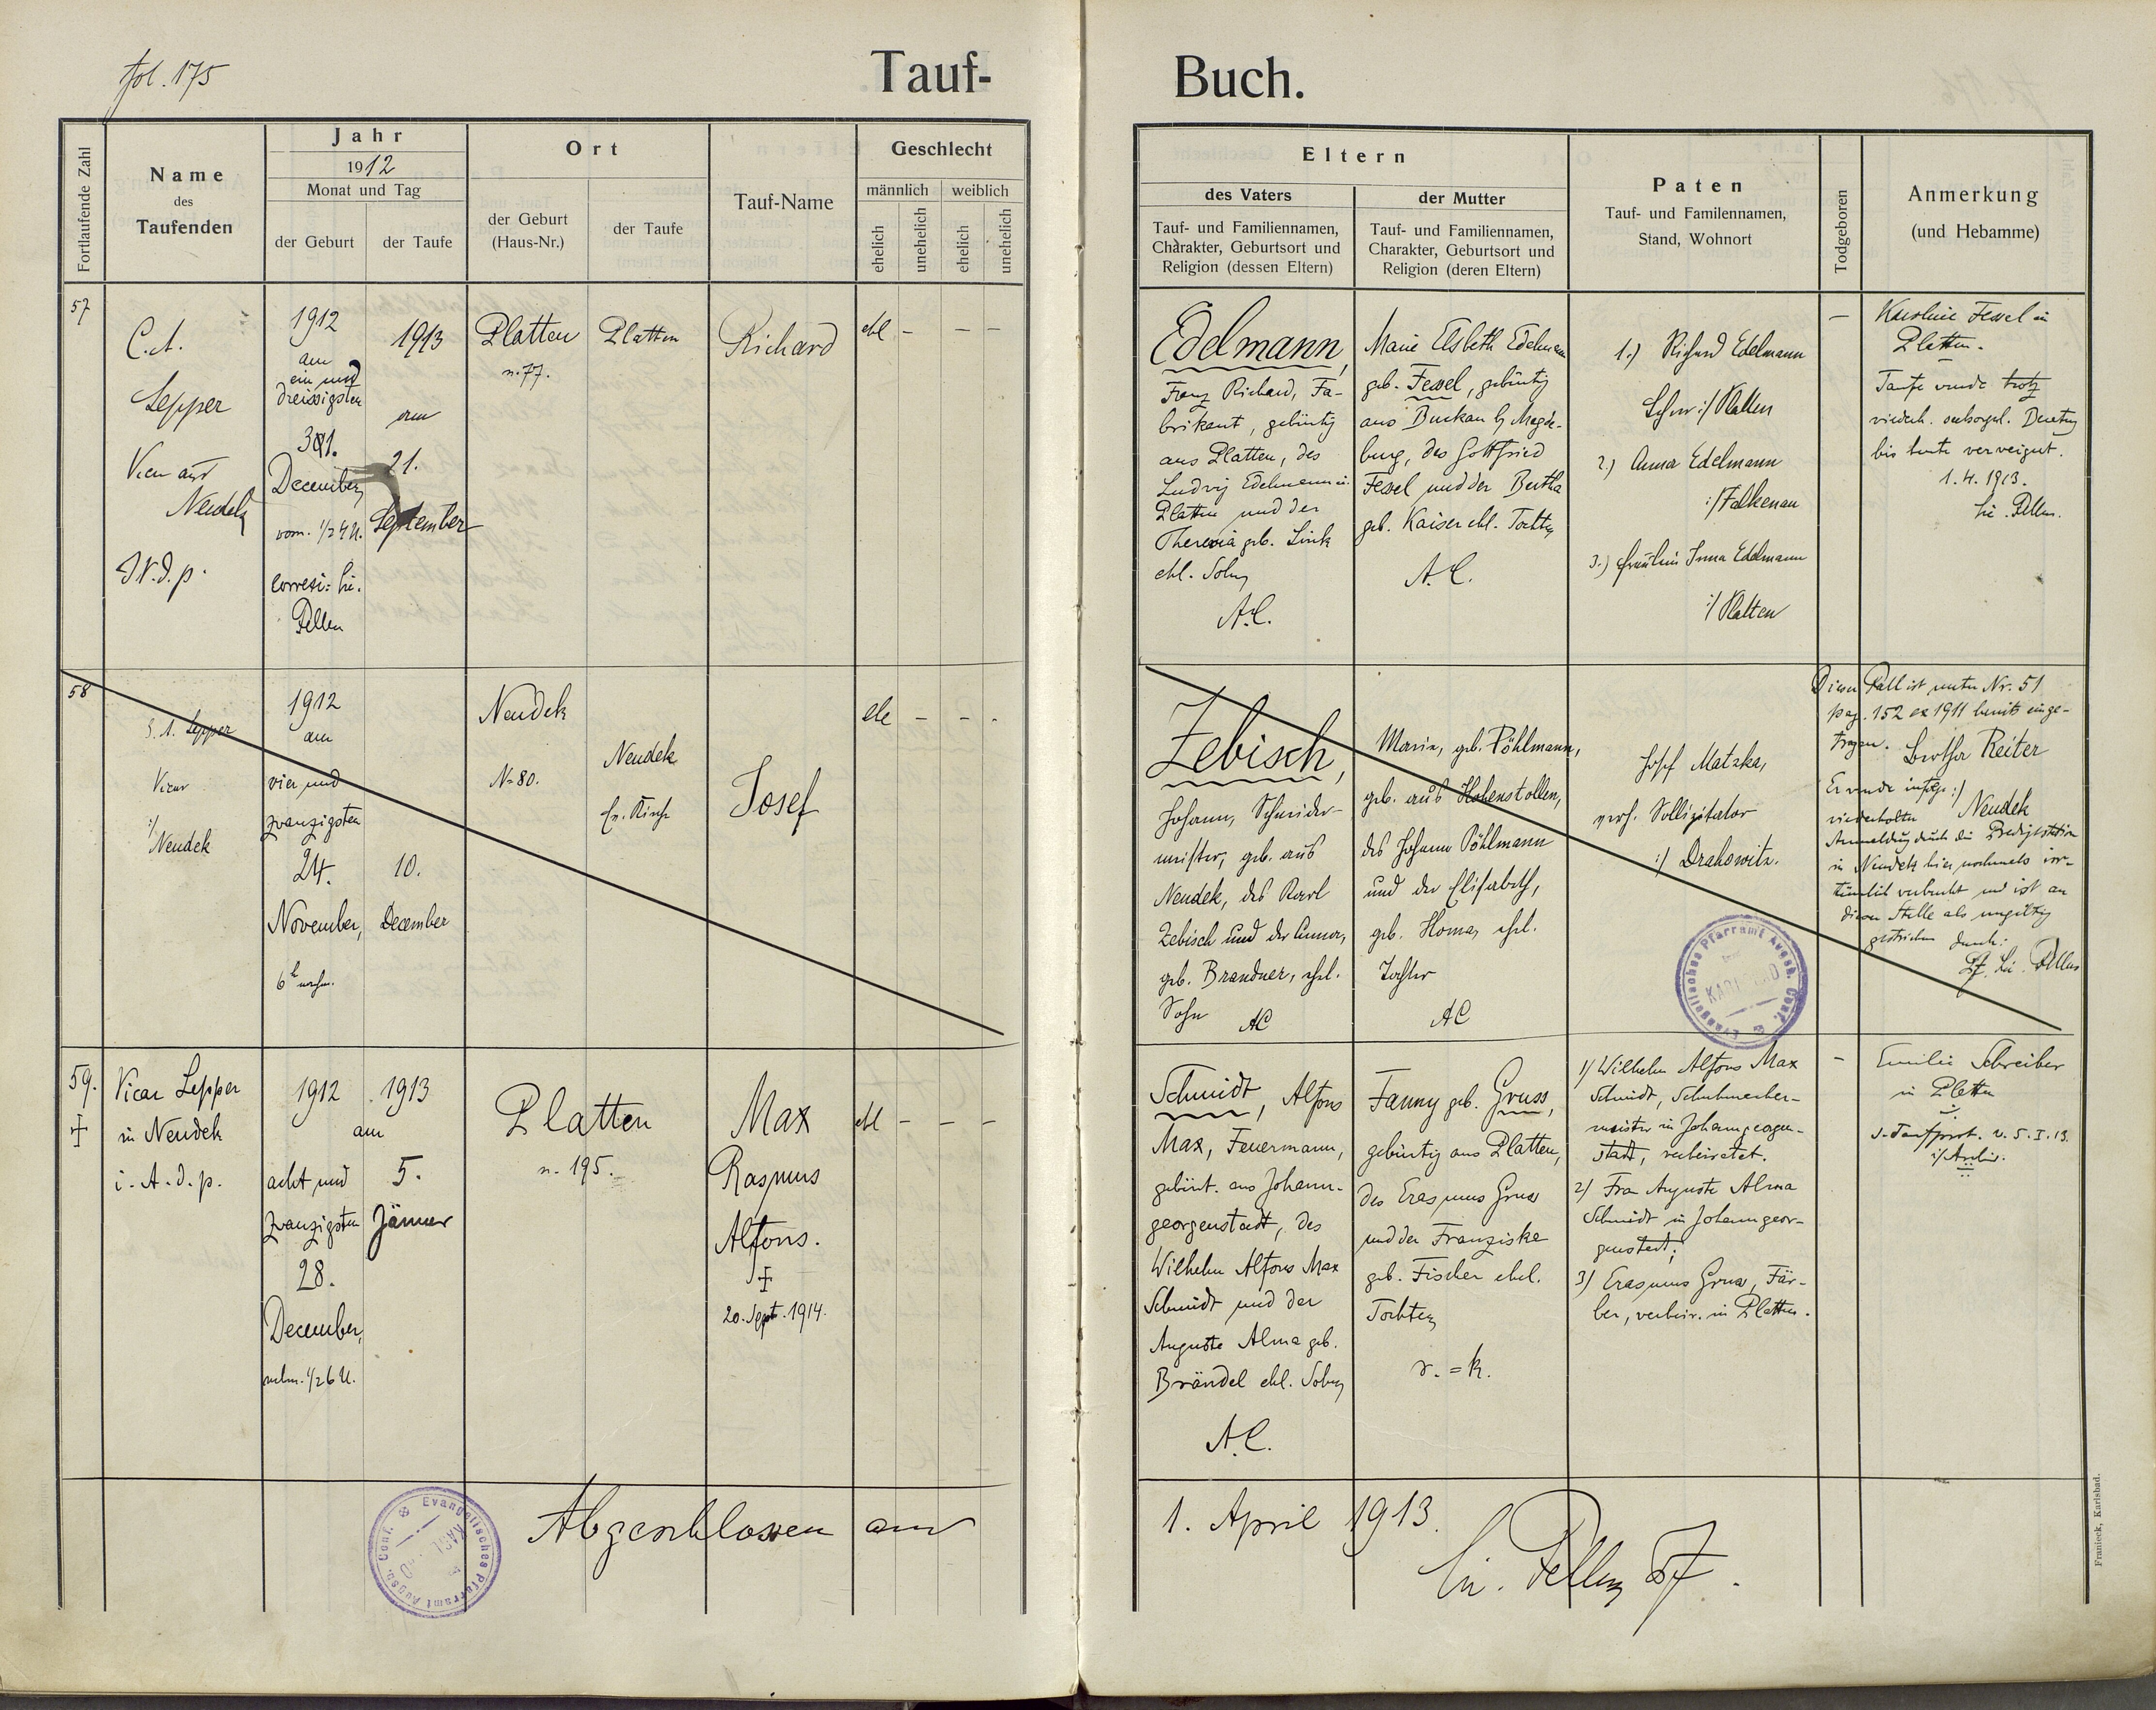 fol. 175
Tauf-
Buch.
Fortlaufende Zahl
Name
des
Taufenden
Jahr
1912
Monat und Tag
der Geburt
der Taufe
Ort
der Geburt
(Haus-Nr.)
der Taufe
Tauf-Name
Geschlecht
männlich
weiblich
ehelich
unehelich
ehelich
unehelich
Eltern
des Vaters
Tauf- und Familiennamen,
Charakter, Geburtsort und
Religion (dessen Eltern)
der Mutter
Tauf- und Familiennamen,
Charakter, Geburtsort und
Religion (deren Eltern)
Paten
Tauf- und Familennamen,
Stand, Wohnort
Todgeboren
Anmerkung
(und Hebamme)
57
Lepper
Vicar aus
Neudek
1912
am
ein und
dreissigsten
December,
vorm. 1/2 4 U.
1913
am
21.
September
Platten
n. 77.
Platten
Richard
ehl - - -
Edelmann,
Franz Richard, Fa-
brikant, gebürtig
aus Platten, des
Ludwig Edelmann in
Platten und der
Theresia geb. Link
ehl. Sohn
A.C.
Marie Elsbeth Edelmann
geb. Fessel, gebürtig
aus Buckau b/ Magde-
burg, des Gottfried
Fessel und der Bertha
geb. Kaiser ehl. Tochter
A.C.
1.) Richard Edelmann
:/ Platten
2.) Anna Edelmann
:/ Falkenau
3.) Fräulein Irma Edelmann
:/ Platten
-
Karoline Fessel in
Platten.
Taufe wurde trotz
wiederh. seelsorgl.
bis heute verweigert.
1. 4. 1913.
58
Lepper
Vicar
:/
Neudek
1912
am
vier und
zwanzigsten
24.
November,
6h nachm.
10.
December
Neudek
N= 80.
Neudek
Ev. Kirche
Josef
ehe - - -
Zebisch,
Johann, Schneider-
meister, geb. aus
Neudek, des Karl
Zebisch und der Anna,
geb. Brandner, ehel.
Sohn AC
Maria, geb. Pöhlmann,
geb. aus Hohenstollen,
des Johann Pöhlmann
und der Elisabeth,
geb. Homa, ehel.
Tochter
AC
Josef Matzka,
Sollizitator
:/ Drahowitz.
Dieser Fall ist unter Nr. 51
pag. 152 ex 1911 bereits einge-
tragen. Reiter
:/ Neudek
Er wurde infolge
wiederholter
Anmeldung durch die Predigtstation
in Neudek hier nochmals irr-
tümlich verbucht und ist an
dieser Stelle als ungiltig
gestrichen durch:
Evangelisches Pfarramt Augsb. Conf.
59.
Vicar Lepper
in Neudek
i. A. d. p.
1912
am
acht und
zwanzigsten
28.
December,
nchm. 1/2 6 U.
1913
5.
Jänner
Platten
n. 195.
Max
Rasmus
Alfons.
20. Sept. 1914.
ehl - - -
Schmidt, Alfons
Max, Feuermann,
gebürt. aus Johann-
georgenstadt, des
Wilhelm Alfons Max
Schmidt und der
Auguste Alma geb.
Brändel ehl. Sohn
A.C.
Fanny geb. Gruss,
gebürtig aus Platten,
des Erasmus Gruss
und der Franziska
geb. Fischer ehel.
Tochter
r. = k.
1) Wilhelm Alfons Max
Schmidt, Schuhmacher-
meister in Johanngeorgen-
stadt, verheiratet.
2) Frau Auguste Alma
Schmidt in Johanngeor-
genstadt;
3) Erasmus Gruss, Fär-
ber, verheir. in Platten.
-
Emilie Schreiber
in Platten
s. Taufprot. v. 5. I. 13.
i/ Archiv.
Evangelisches Pfarramt Augsb. Conf.
Abgeschlossen am
1. April 1913.
Franieck, Karlsbad.